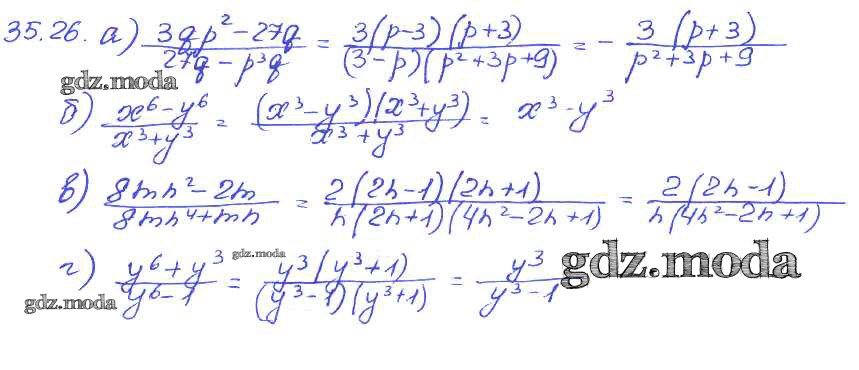 35.26. а) (3qp² − 27q)/(27q − p³q) = (3(p−3)(p+3))/((3−p)(p²+3p+9)) = − (3(p+3))/(p²+3p+9)
gdz.moda
б) (x⁶−y⁶)/(x³+y³) = ((x³−y³)(x³+y³))/(x³+y³) = x³ - y³
в) (8mn²−2m)/(8mn⁴+mn) = (2(2n−1)(2n+1))/(n(2n+1)(4n²−2n+1)) = (2(2n−1))/(n(4n²−2n+1))
г) (y⁶+y³)/(y⁶−1) = (y³(y³+1))/((y³−1)(y³+1)) = y³/(y³−1)
gdz.moda
gdz.moda
gdz.moda